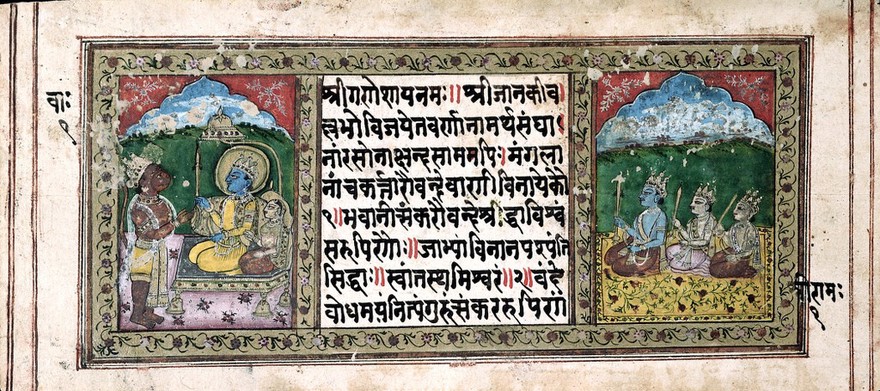 वाः
१
श्रीगणेशायनमः॥श्रीजानकीव
ल्लभोविजयेतवर्णानामर्थसंघा
नांरसोनाछन्दसाममपि।मंगला
नांचकर्त्तारौवन्देवाणीविनायकौ
१॥भवानीसंकरौवन्देश्रीद्धाविश्व
सरुपिरणौ॥जाभ्यांविनानपश्पंति
सिद्धाः॥स्वांतस्थमिश्वरं॥२॥वंदे
वोधमयंनित्पंगुरुसंकररुपिरणं
श्रीरामः
१